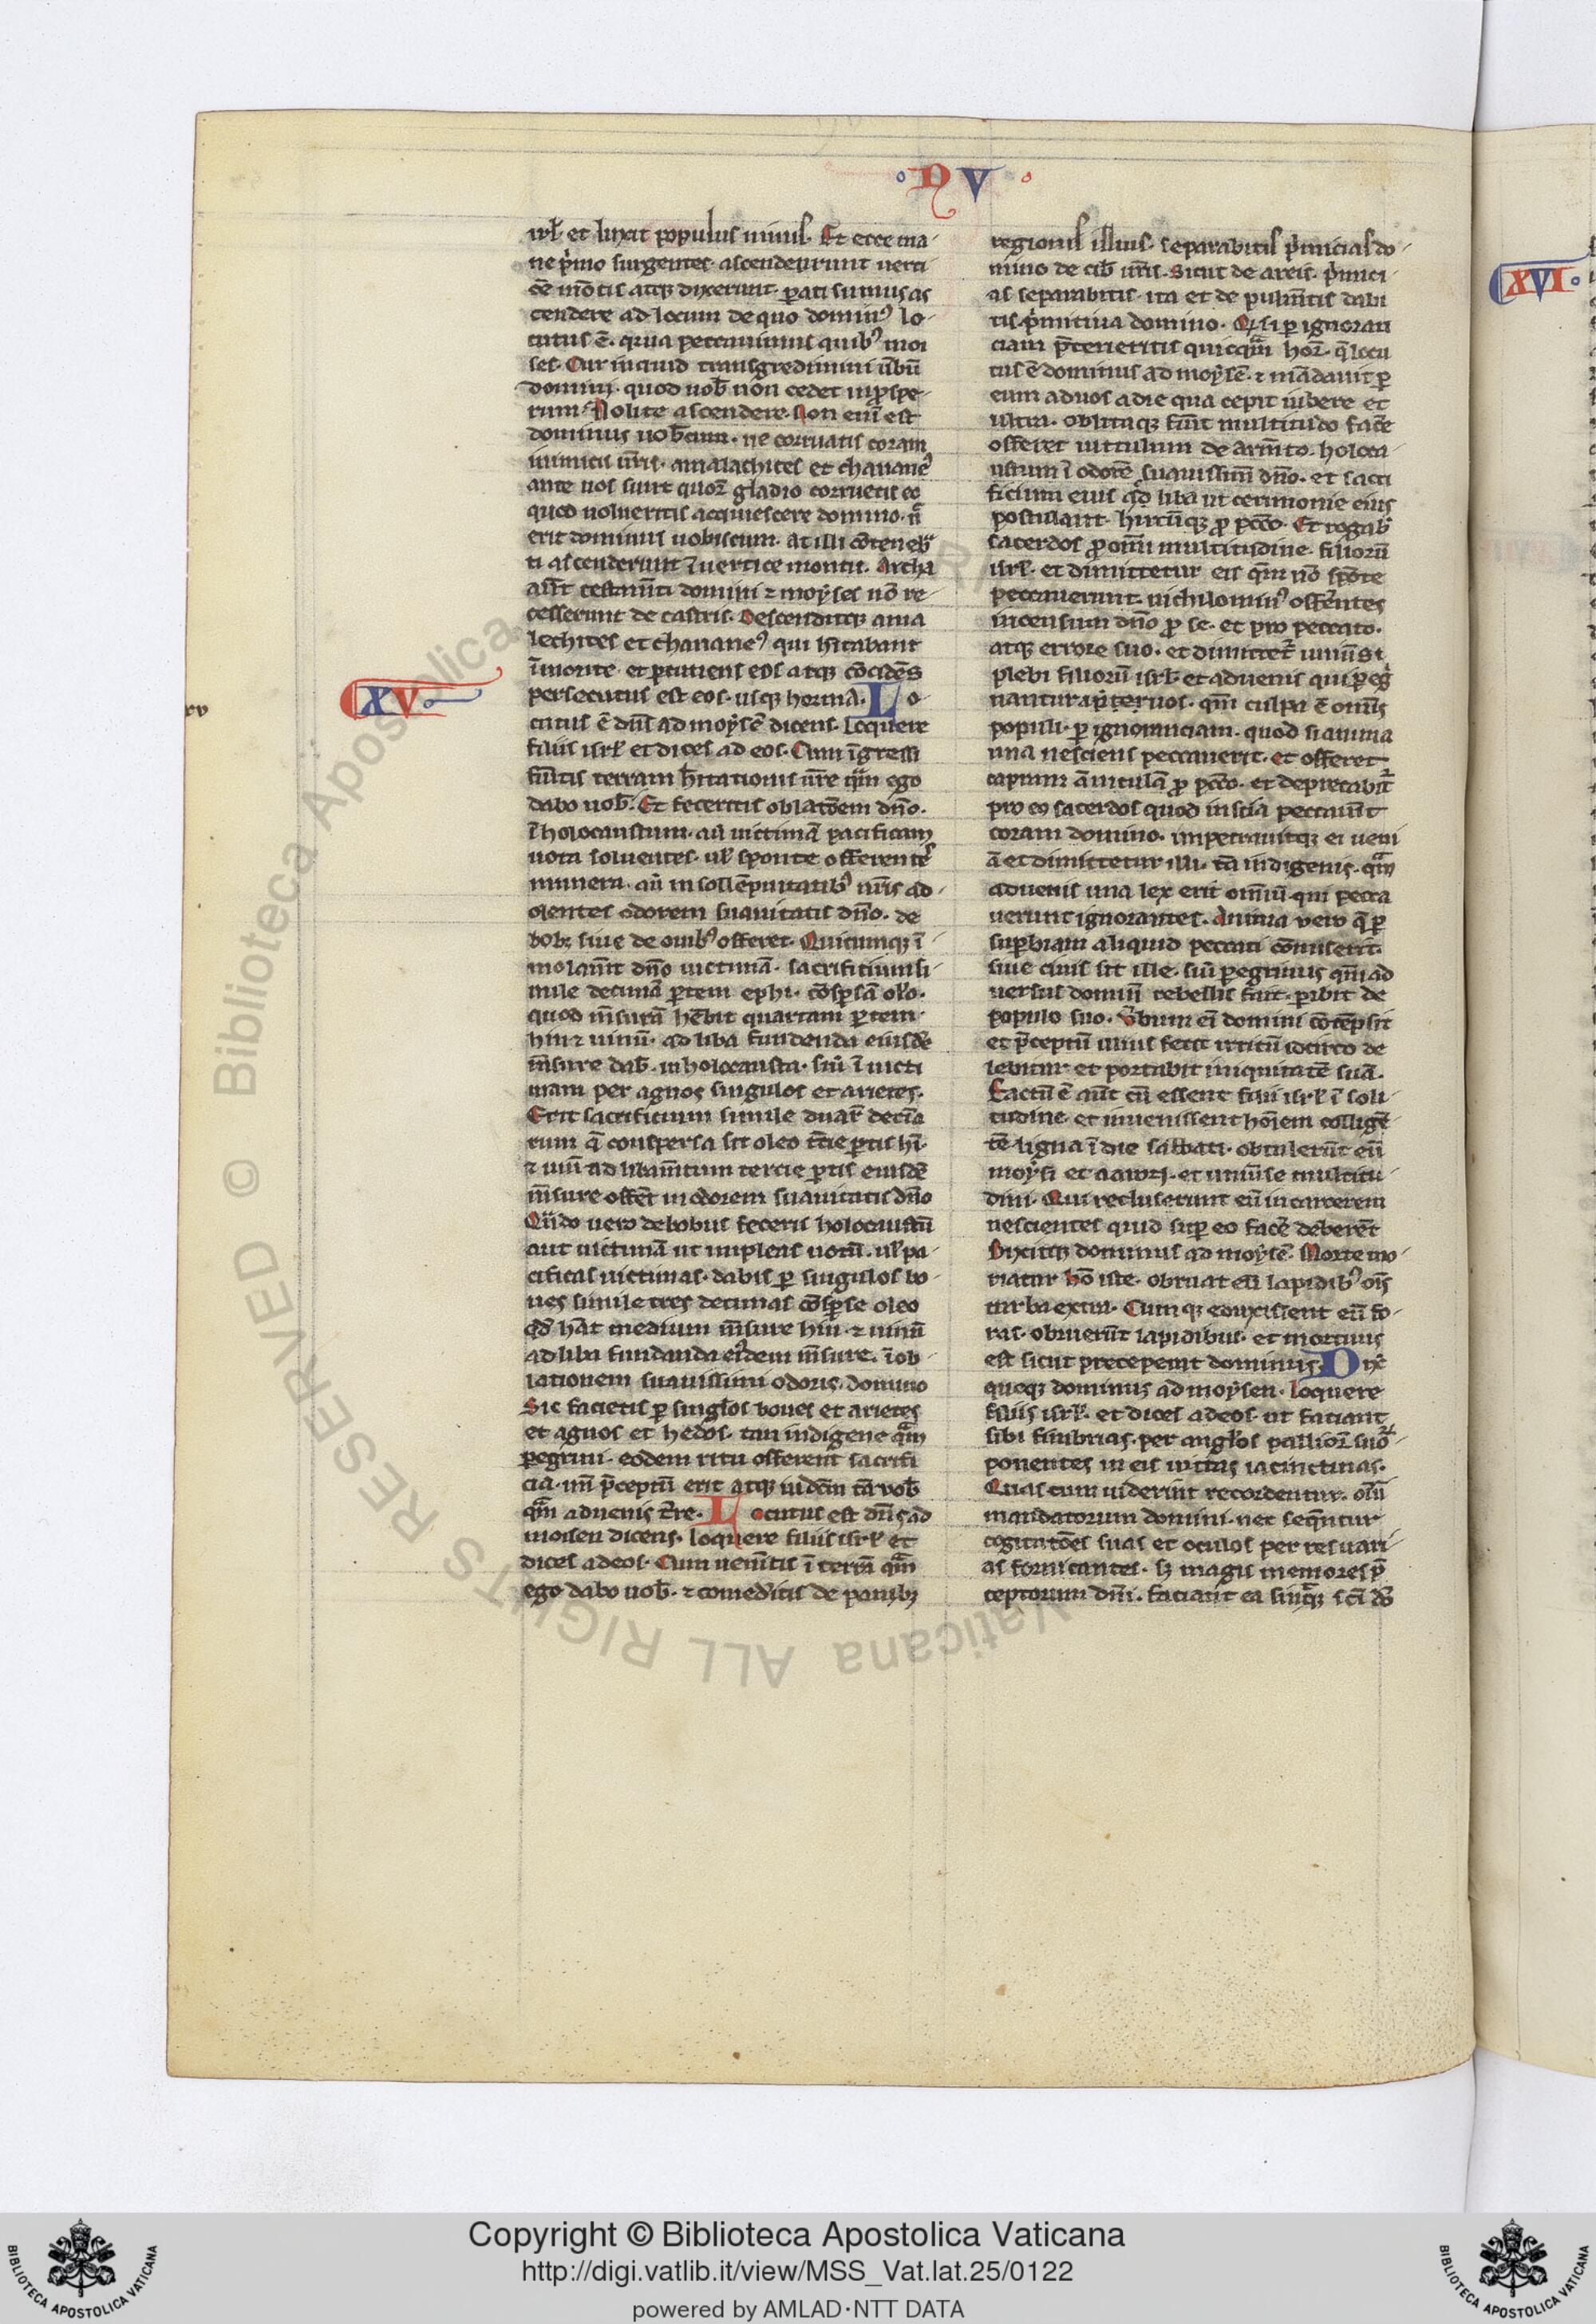 N V
isrl̄. et luxit populus nimis. Et ecce ma-
ne p̄mo surgentes. ascenderunt uerti
cē mōtis atqꝫ dixerunt. parati sumus as
cendere ad locum de quo dominꝰ lo-
cutus ē. quia peccauimus quibꝰ moi
ses. Cur inquid transgredimini ūbū
domini. quod uob̄ non cedet in prospe-
rum. Nolite ascendere. Non eni ē est
dominus uob̄cum. ne corruatis coram
inimicis ūris. amalachites et chananeꝰ
ante uos sunt quoꝝ gladio corruetis eo
quod nolueritis acquiescere domino. n̄
erit dominus uobiscum. At illi cōteneb̄
ti ascenderunt ī uertice montis. Archa
aut̄ testam̄ti domini ⁊ moyses nō re-
cesserunt de castris. Descenditqꝫ ama
lechites et chananeꝰ qui h̄itabant
ī monte. et p̄cutiens eos atqꝫ cōcidēs
persecutus est eos. usqꝫ horma. Lo-
XV.
xv
cutus ē dn̄s ad moysē dicens. Loquere
filiis isrl̄ et dices ad eos. Cum īgressi
fūitis terram h̄itationis ūre quā ego
dabo uob̄. Et feceritis oblatōem dn̄o.
ī holocaustum. aū uictimā pacificam
uota soluentes. ul̄ sponte offerentes
munera. aū in sollēpnitatibꝰ ūris ad-
olentes odorem suauitatis dn̄o. de
bobꝫ siue de ouibꝰ offeret. Quicumqꝫ ī
molauīt dn̄o uictimā. sacrificium si
mile decimā ꝑtem ephi. cōspsā oleo.
quod m̄surā hēbit quartam ꝑtem.
hin ⁊ uinū. ad liba fundenda eiusdē
m̄sure dab̄. in holocausta. siū ī uicti
mam per agnos singulos et arietes.
Erit sacrificium simile duaꝝ decia
rum q̄ conspersa sit oleo t̄cie ꝑtis hī.
⁊ uinū ad libam̄tum tercie ꝑtis eiusdē
m̄sure offēt in odorem suauitatis dn̄o
Qn̄do uero de bobus feceris holocaustū
aut uictimā ut impleas uotū. ul̄ pa-
cificas uictimas. dabis ꝑ singulos bo-
ues simile tres decimas cōspse oleo
qd̄ hāt medium m̄sure hin. ⁊ uinū
ad liba fundanda eīdem m̄sure. ī ob-
lationem suauissimi odoris. domino
Sic facietis ꝑ singl̄os boues et arietes
et agnos et hedos. tam indigene quā
ꝑegrini. eodem ritu offerent sacrifi
cia. un̄ p̄ceptū erit atqꝫ iudiciū tā uob̄
quā aduenis t̄re. Locutus est dn̄s ad
moisen dicens. Loquere filiis isrl̄ et
dices ad eos. Cum uenītis ī terrā quā
ego dabo uob̄. ⁊ comedītis de panibꝫ
regionis illius. separabitis p̄micias do-
mino de cib̄ ūris. Sicut de areis. p̄mici-
as separabitis. ita et de pulm̄tis dabi
tis. p̄mitiua domino. Qd̄ si ꝑ ignoran
ciam p̄terieritis quicquā hoꝝ. q̄ locu
tus ē dominus ad moysē. ⁊ mādauit ꝑ
eum ad uos a die qua cepit iubere et
ultra. oblitaqꝫ fūit multitudo facē
offeret uitulum de arm̄to. holoca
ustum ī odorē suauissimū dn̄o. et sacri
ficium eius qd̄ liba ut cerimonie eius
postulant. hircūqꝫ ꝓ pctō. Et rogab̄
sacerdos ꝓ omī multitudine. filiorū
isrl̄. et dimittetur eis qm̄ nō spōte
peccauerunt. nichilominꝰ offerentes
incensum dn̄o ꝓ se. et pro peccato.
atqꝫ errore suo. et dimittet̄ uniūsi
plebi filiorū isrl̄. et aduenis qui ꝑeḡ
nantur ap̄ter uos. qm̄ culpa ē omīs
populi. ꝑ ignoranciam. quod si anima
una nesciens peccauerit. et offeret
capram āniculā ꝓ pctō. et deprecabit̄
pro eo sacerdos quod inscia peccauīt
coram domino. impetrauitqꝫ ei ueni
ā et dimittetur illi. tā indigenis. quā
aduenis una lex erit omiū. qui pecca
uerunt ignorantes. Anima uero q̄ ꝑ
supbiam aliquid peccati cōmiserit.
siue ciuis sit ille. siū ꝑegrinus qm̄ ad
uersus dominū rebellis fuit. ꝑibit de
populo suo. Ūbum eī domini cōtēpsit
et p̄ceptū illius fecit irritū idcirco de
lebitur et portabit iniquitatē suā.
Factū ē aūt cū essent filii isrl̄ ī soli-
tudine. et inuenissent hōiem colligē-
tē ligna ī die sabbati. obtulerūt eū
moysi et aaron. et uniūse multitu
dini. Qui recluserunt eū in carcerem
nescientes quid sup eo facē deberēt
Dixitqꝫ dominus ad moysē. Morte mo-
riatur hō iste. obruat eū lapidibꝰ oīs
turba extra. Cumqꝫ eduxissent eū fo-
ras. obruerūt lapidibus. et mortuus
est sicut preceperat dominus. Dixit
quoqꝫ dominus ad moysen. Loquere
filiis isrl̄. et dices ad eos. ut faciant
sibi fimbrias. per angl̄os pallioꝝ suoꝝ-
ponentes in eis uittas iacinctinas.
Quas cum uiderint recordentur. oīū
mandatorum domini. nec sequntur
cogitatōes suas et oculos per res uari-
as fornicantes. sꝫ magis memores p̄
ceptorum dn̄i. faciant ea sintqꝫ sc̄i dō
XVI.
Copyright © Biblioteca Apostolica Vaticana
http://digi.vatlib.it/view/MSS_Vat.lat.25/0122
powered by AMLAD·NTT DATA
© Biblioteca Apostolica Vaticana ALL RIGHTS RESERVED
BIBLIOTECA APOSTOLICA VATICANA
BIBLIOTECA APOSTOLICA VATICANA